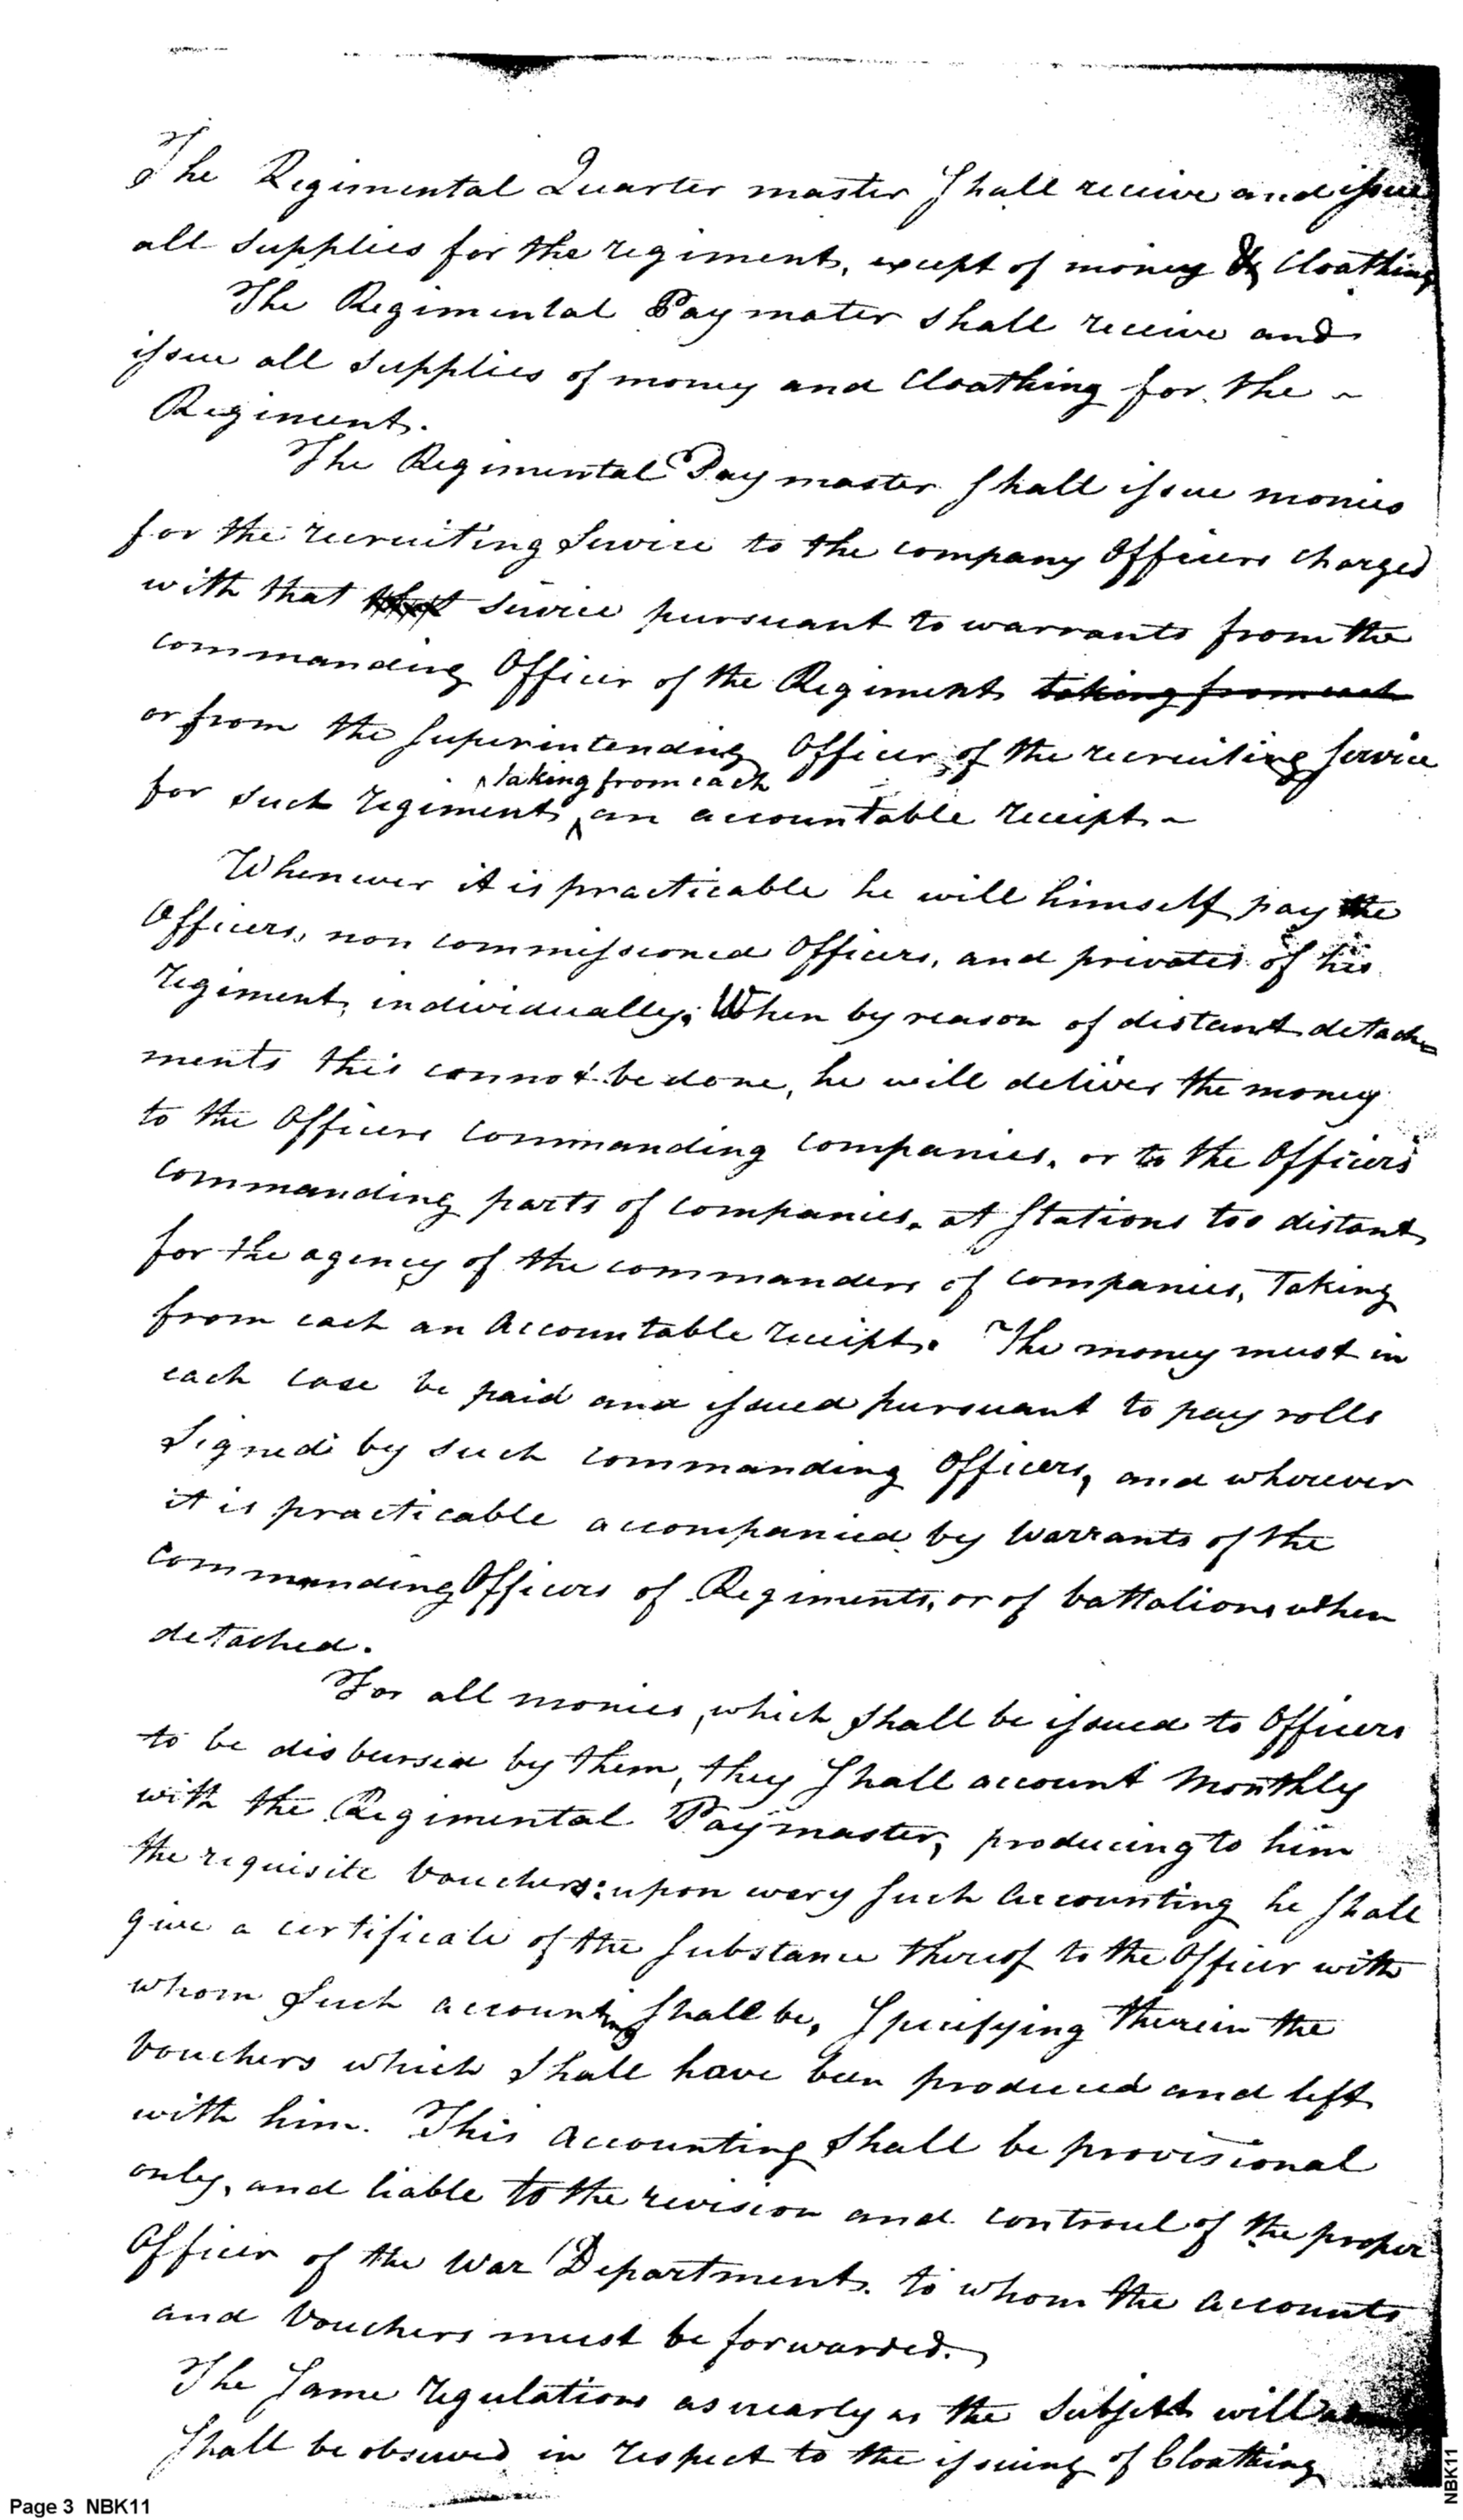 The Regimental Quarter master shall receive and issue
all supplies for the regiment, except of money & Cloathing
The Regimental Paymater shall receive and
issue all supplies of money and Cloathing for the
Regiment.
The Regimental Pay master shall issue monies
for the recruiting Service to the company Officers charged
with that that service pursuant to warrants from the
commanding Officer of the Regiment taking from each
or from the Superintending Officer, of the recruiting Service
taking from each
for such regiment, an accountable receipt.
Whenever it is practicable he will himself pay the
Officers, non commissioned Officers, and privates of his
regiment, individually; When by reason of distant detach=
ments this cannot be done, he will deliver the money
to the Officers commanding companies, or to the Officers
commanding parts of companies, at Stations too distant
for the agency of the commanders of companies, Taking
from each an Accountable receipt. The money must in
each case be paid and issued pursuant to pay rolls
Signed by such commanding Officers, and wherever
it is practicable accompanied by Warrants of the
commanding Officers of Regiments, or of battalions when
detached.
For all monies, which shall be issued to Officers
to be disbursed by them, they shall account Monthly
with the Regimental Paymaster, producing to him
the requisite Vouchers: upon every such Accounting he shall
give a certificate of the Substance thereof to the Officer with
whom such accounting shall be, Specifying therein the
Vouchers which shall have been produced and left
with him. This Accounting shall be provisional
only, and liable to the revision and controul of the proper
Officer of the War Department. to whom the Accounts
and Vouchers must be forwarded.
The Same regulations as nearly as the Subject will
Shall be observed in respect to the issuing of Cloathing
Page 3 NBK11
NBK11